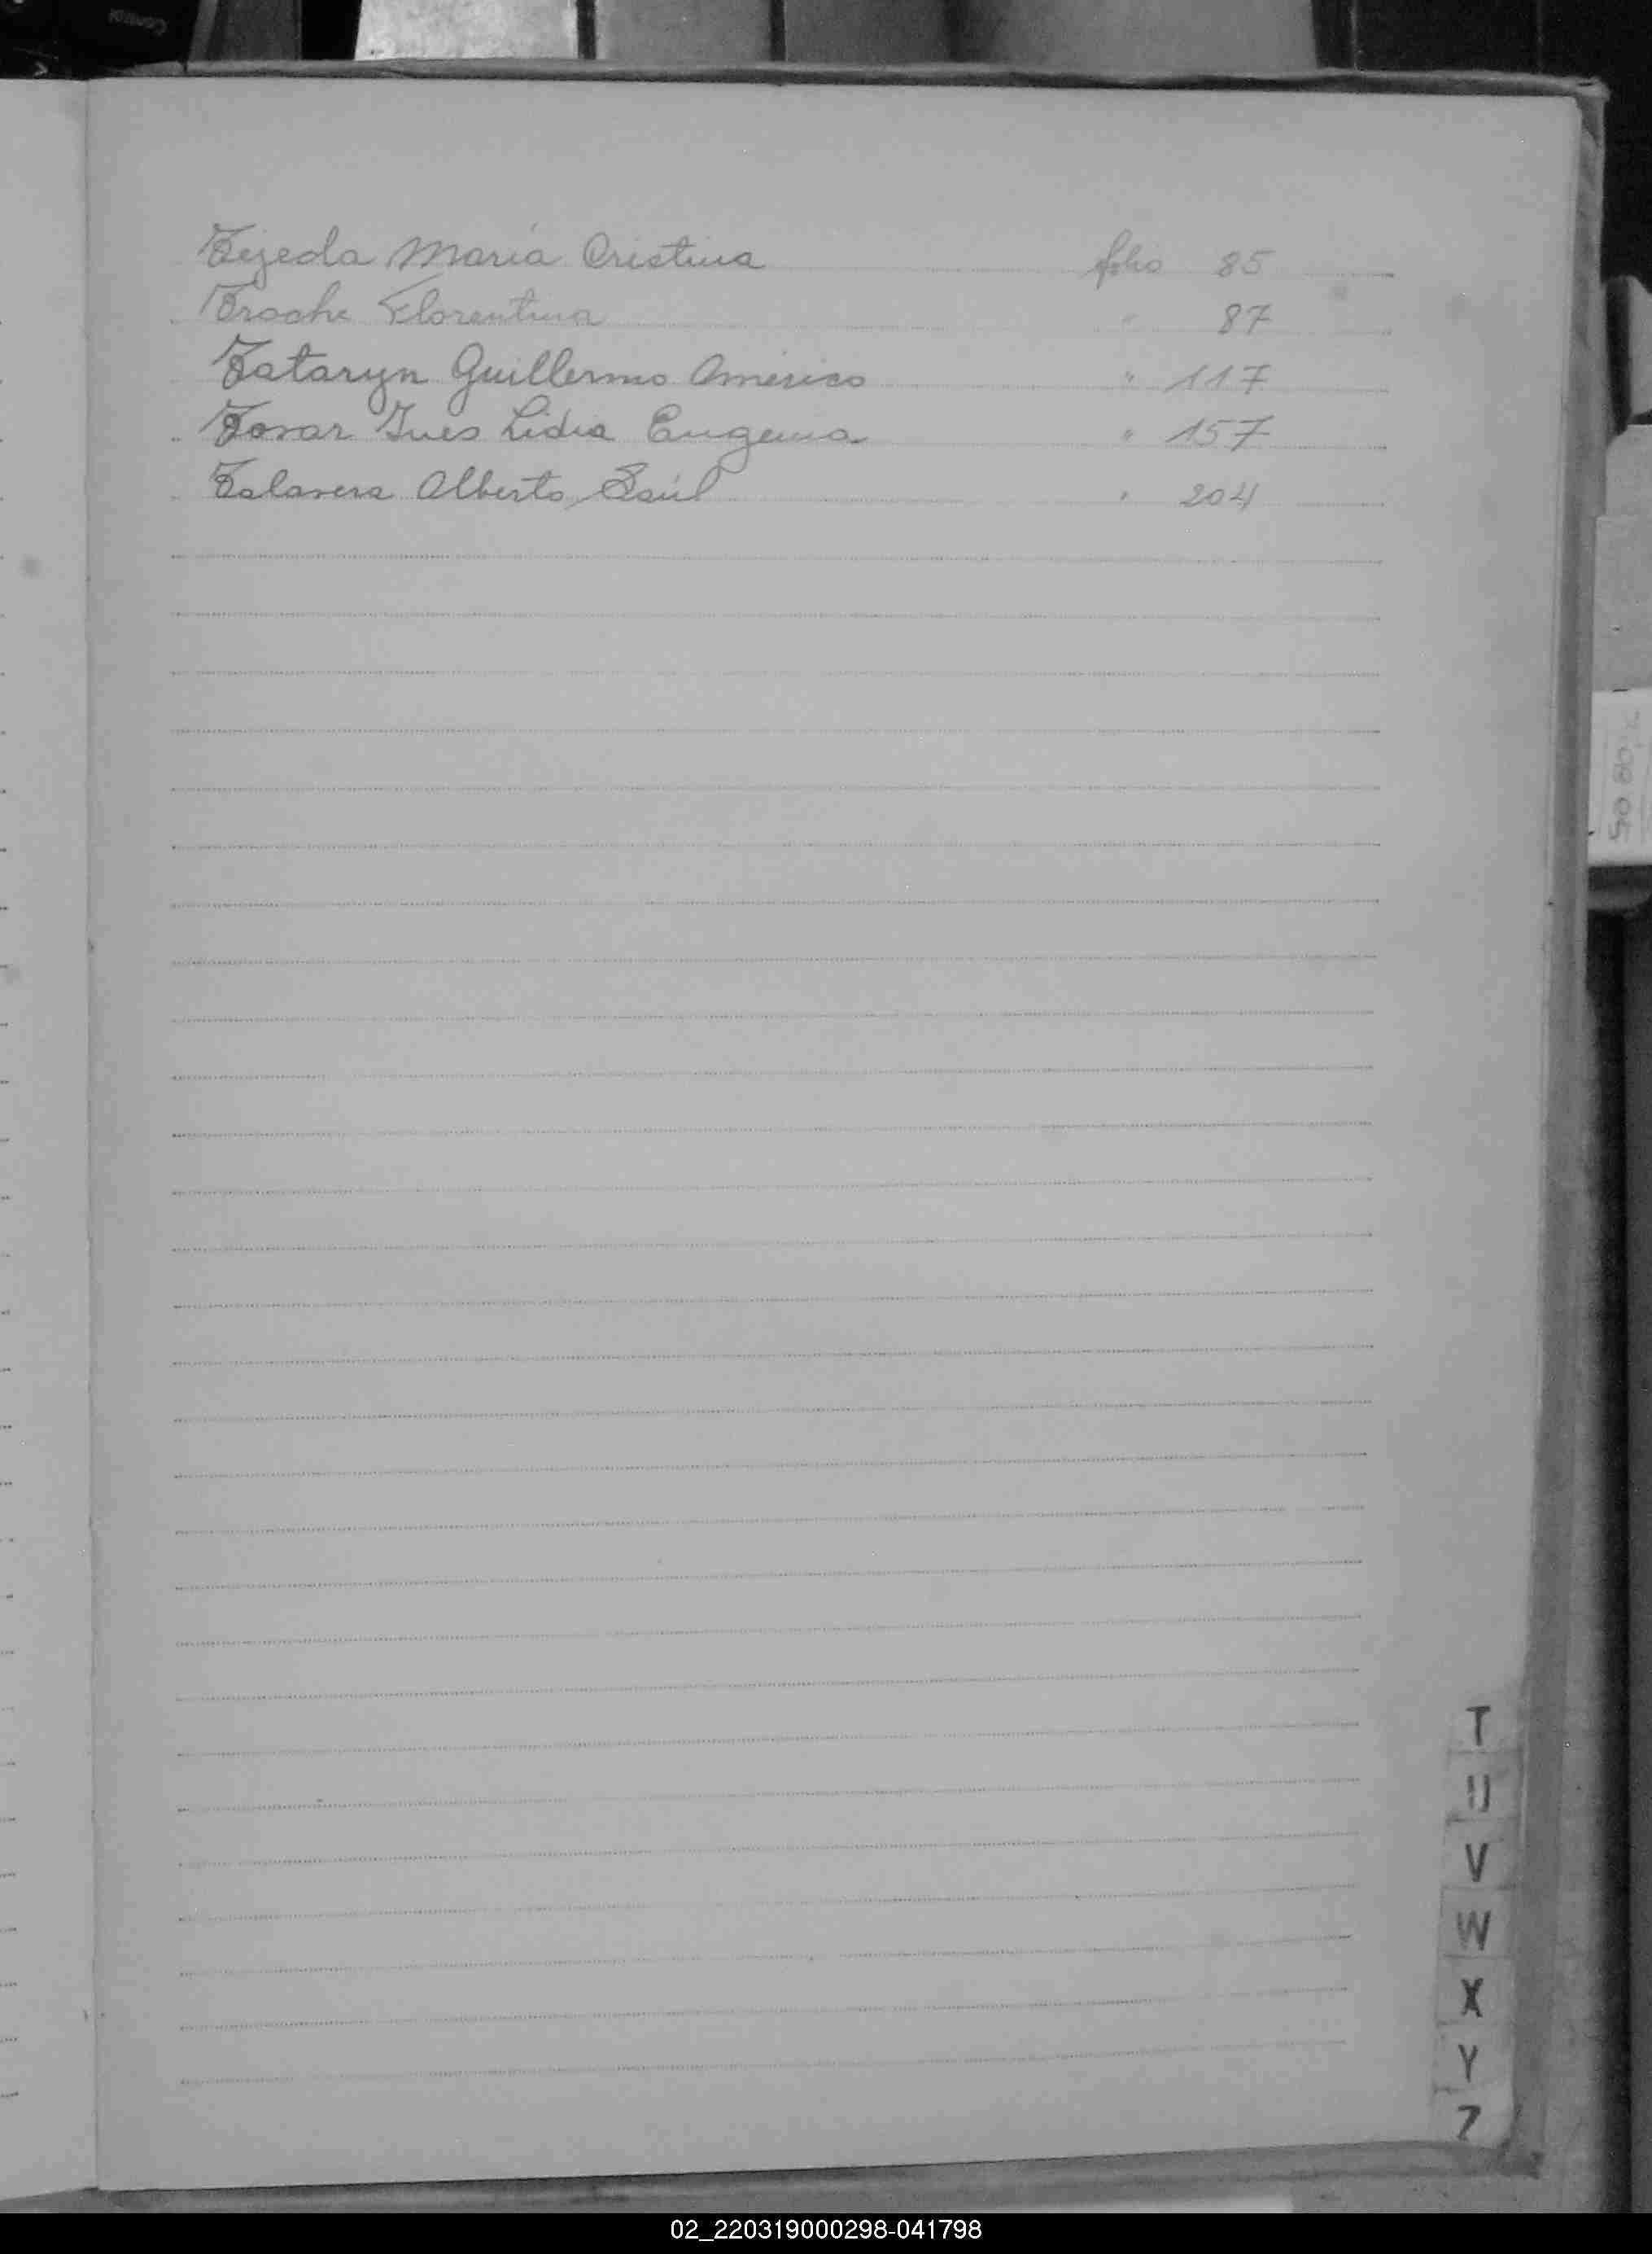 Tejeda María Cristina folio 85
Troche Florentina " 87
Tataryn Guillermo Américo " 117
Tovar Ines Lidia Eugenia " 157
Talavera Alberto Saúl " 204
T
U
V
W
X
Y
Z
02_220319000298-041798